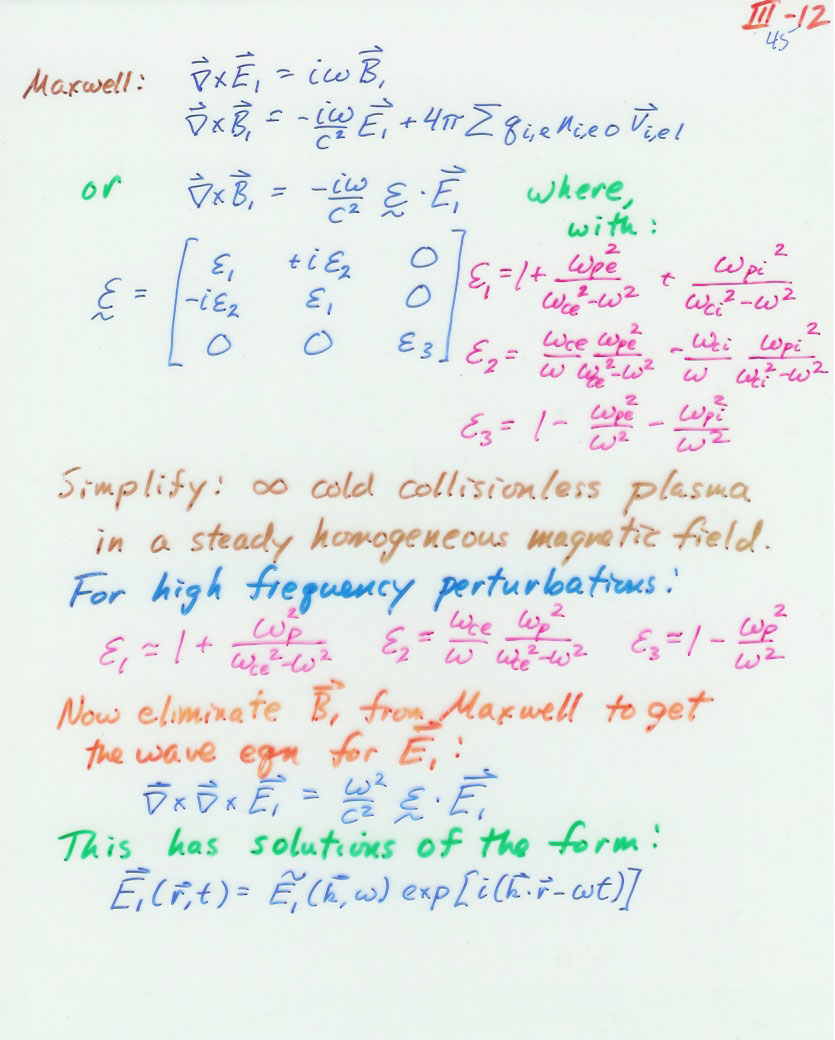 III-12
45
Maxwell: ∇⃗×E⃗₁ = iω B⃗₁
∇⃗×B⃗₁ = -iω/c² E⃗₁ + 4π Σ q_{i,e} n_{i,e0} v⃗_{i,e1}
or ∇⃗×B⃗₁ = -iω/c² ε̰ · E⃗₁ where,
with:
ε̰ = [ ε₁ +iε₂ 0 ; -iε₂ ε₁ 0 ; 0 0 ε₃ ]
ε₁ = 1 + ω_pe²/(ω_ce²-ω²) + ω_pi²/(ω_ci²-ω²)
ε₂ = ω_ce/ω ω_pe²/(ω_ce²-ω²) - ω_ci/ω ω_pi²/(ω_ci²-ω²)
ε₃ = 1 - ω_pe²/ω² - ω_pi²/ω²
Simplify: ∞ cold collisionless plasma
in a steady homogeneous magnetic field.
For high frequency perturbations:
ε₁ ≃ 1 + ω_p²/(ω_ce²-ω²) ε₂ = ω_ce/ω ω_p²/(ω_ce²-ω²) ε₃ = 1 - ω_p²/ω²
Now eliminate B⃗₁ from Maxwell to get
the wave eqn for E⃗₁:
∇⃗×∇⃗×E⃗₁ = ω²/c² ε̰ · E⃗₁
This has solutions of the form:
E⃗₁(r⃗,t) = Ẽ₁(k⃗,ω) exp[i(k⃗·r⃗-ωt)]